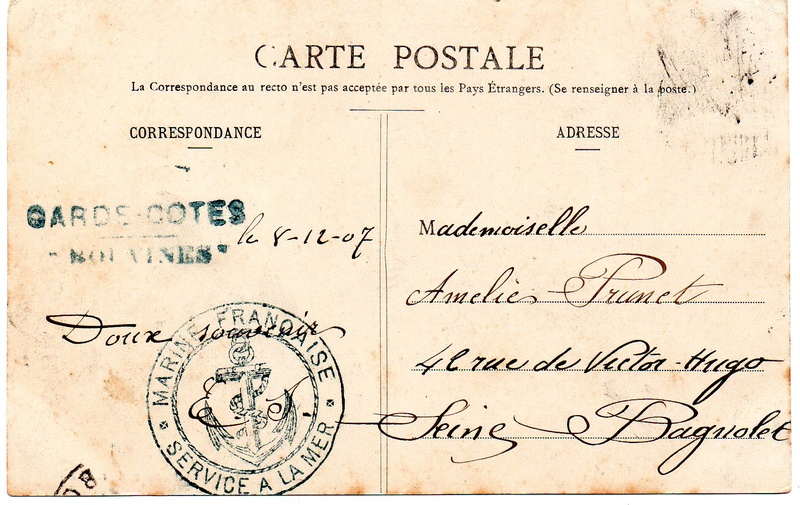 CARTE POSTALE
La Correspondance au recto n'est pas acceptée par tous les Pays Étrangers. (Se renseigner à la poste.)
CORRESPONDANCE
GARDE-COTES
"BOUVINES"
le 8-12-07
Doux souvenir
MARINE FRANÇAISE
SERVICE A LA MER
ADRESSE
Mademoiselle
Amelie Prunet
rue de Victor-Hugo
Seine Bagnolet